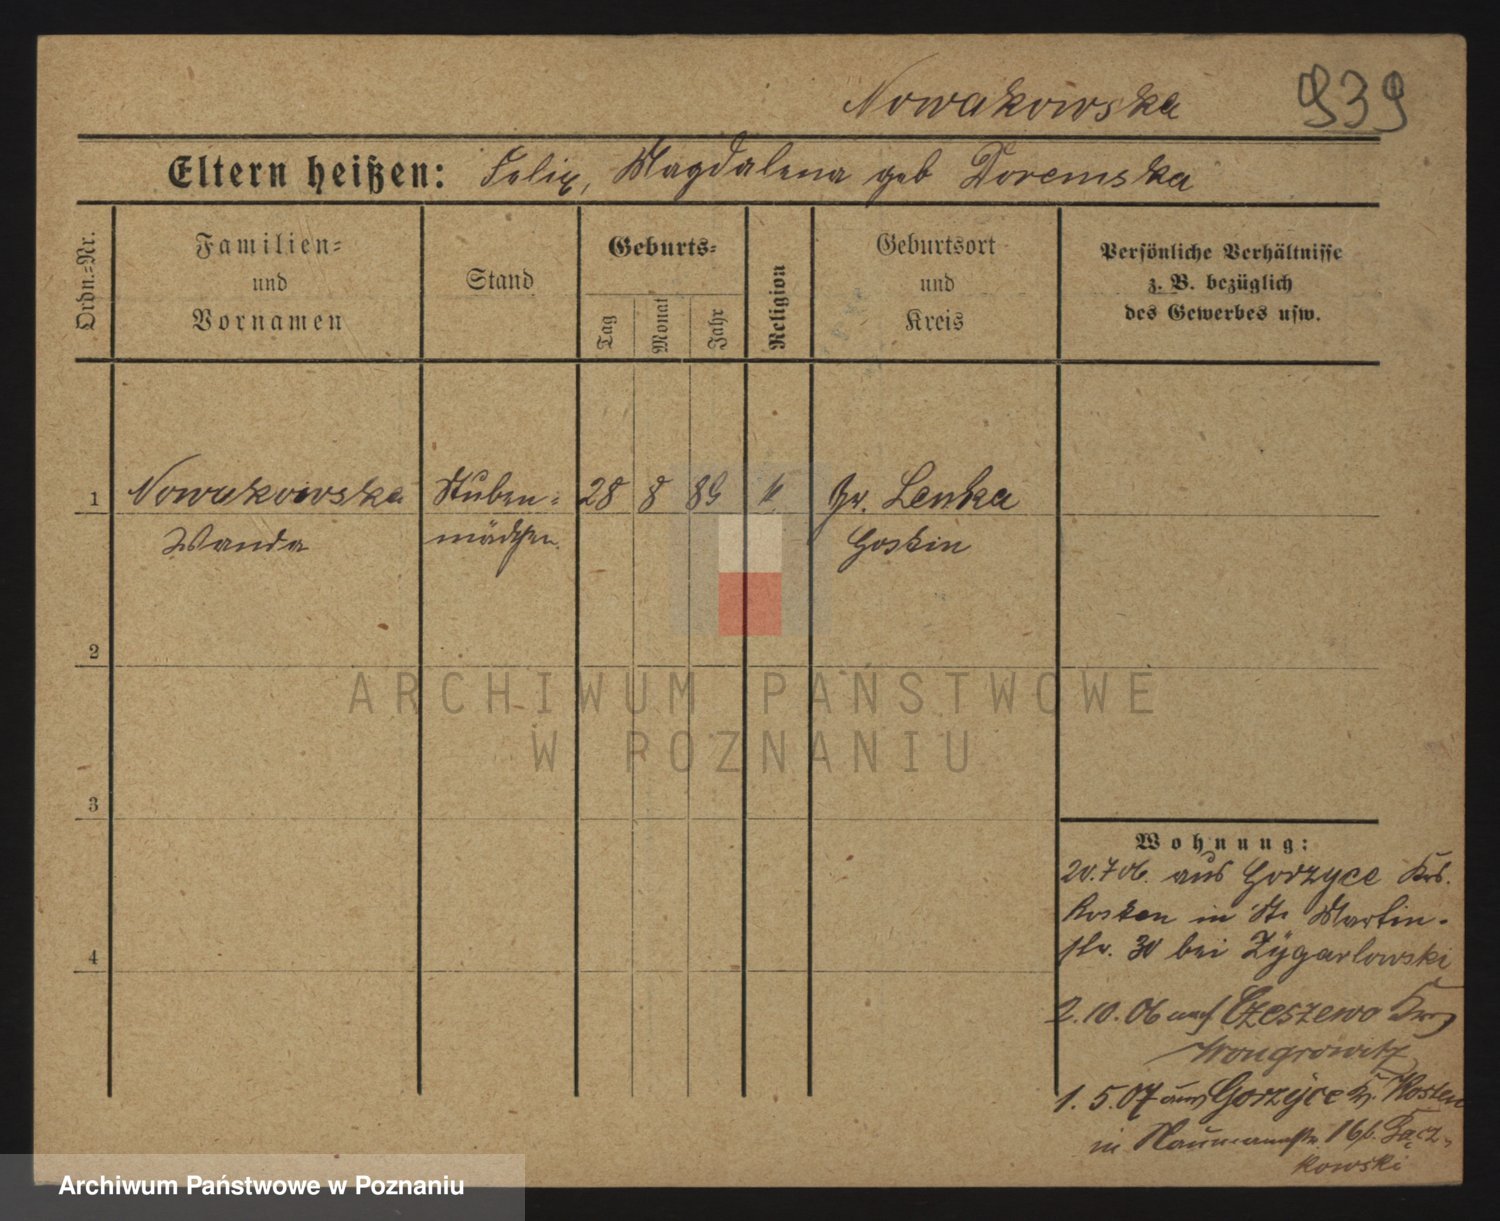 Nowakowska
939
Eltern heißen: Felix, Magdalena geb Doremska
Ordn.=Nr.
Familien=
und
Vornamen
Stand
Geburts=
Tag
Monat
Jahr
Religion
Geburtsort
und
Kreis
Persönliche Verhältnisse
z. B. bezüglich
des Gewerbes usw.
1 Nowakowska Stuben= 28 8 89 k Gr. Lenka
Wanda mädchen. Gostin
2
3
4
Wohnung:
20.7.06. aus Gorzyce Krs.
Kosten in St. Martin-
str. 30 bei Zÿgarlowski
2.10.06 nach Czeszewo Krs
Wongrowitz
1.5.07 aus Gorzÿce Kr. Kosten
in Naumannstr. 16 b. Łącz-
kowski
ARCHIWUM PAŃSTWOWE
W POZNANIU
Archiwum Państwowe w Poznaniu